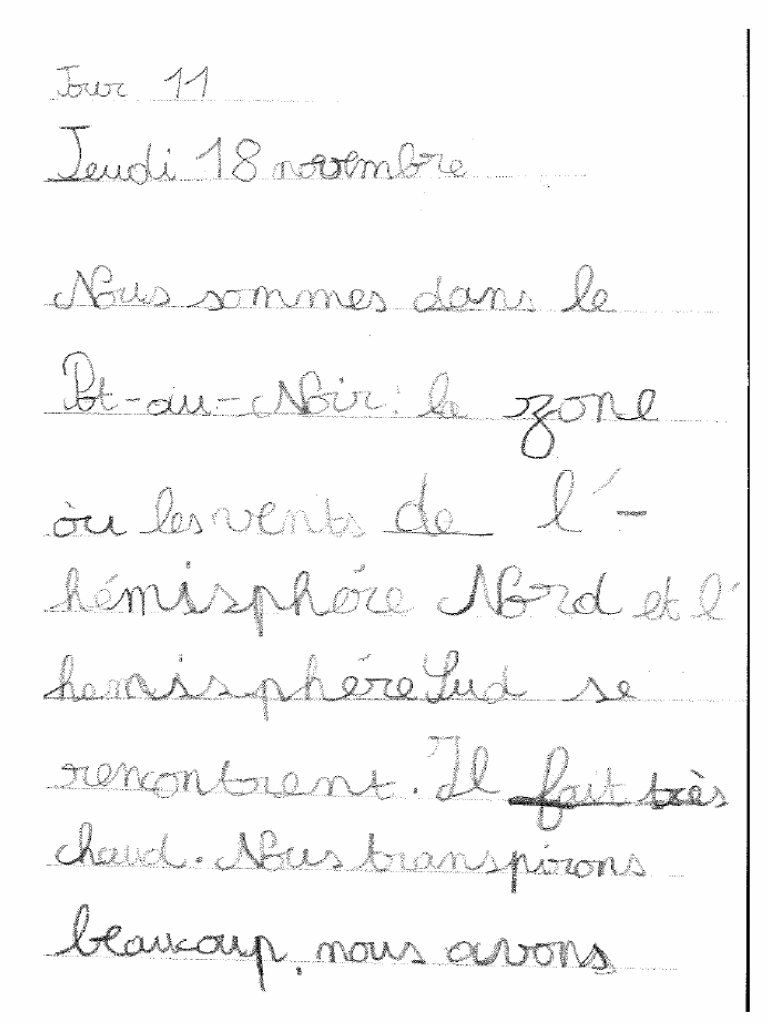 Jour 11
Jeudi 18 novembre
Nous sommes dans le
Pot-au-Noir : la zone
où les vents de l'-
hémisphére Nord et l'
hemisphére Sud se
rencontrent. Il fait très
chaud. Nous transpirons
beaucoup, nous avons